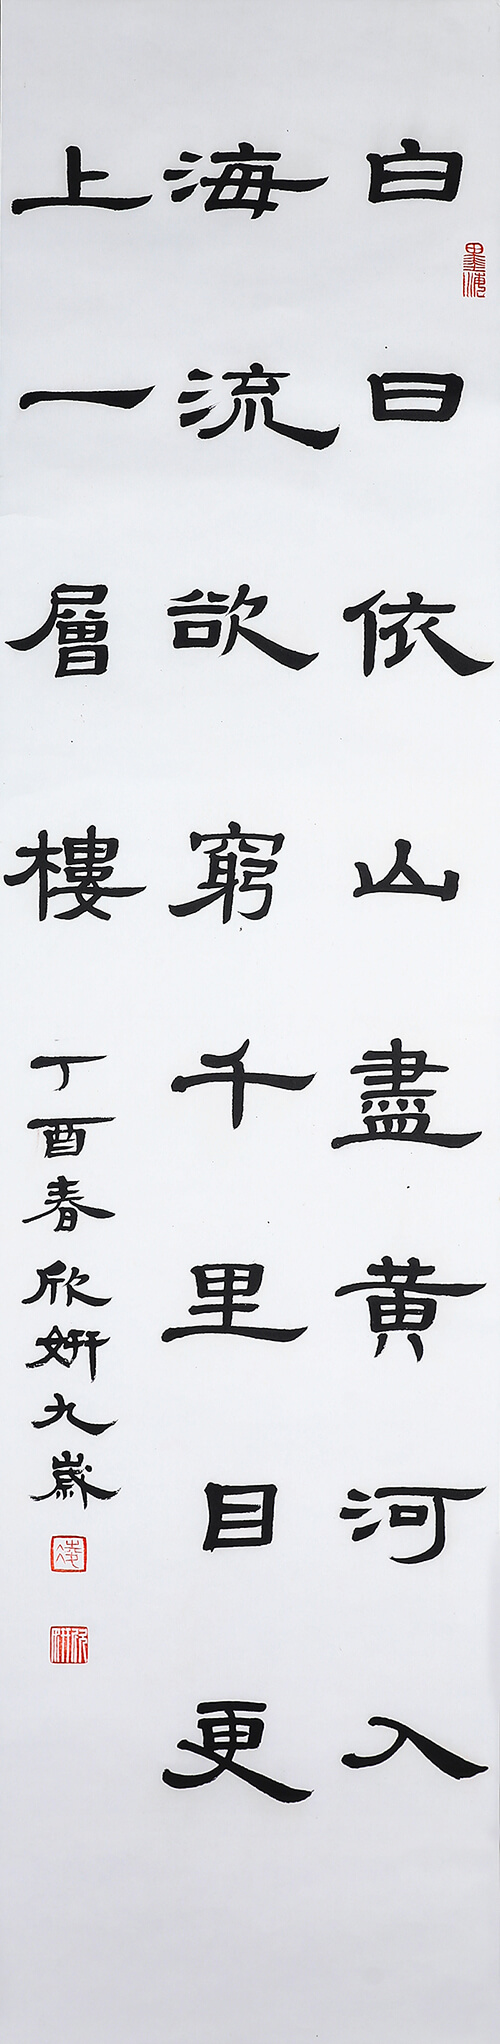 白日依山盡黄河入
墨海
海流欲窮千里目更
上一層樓
丁酉春欣妍九歲
凌